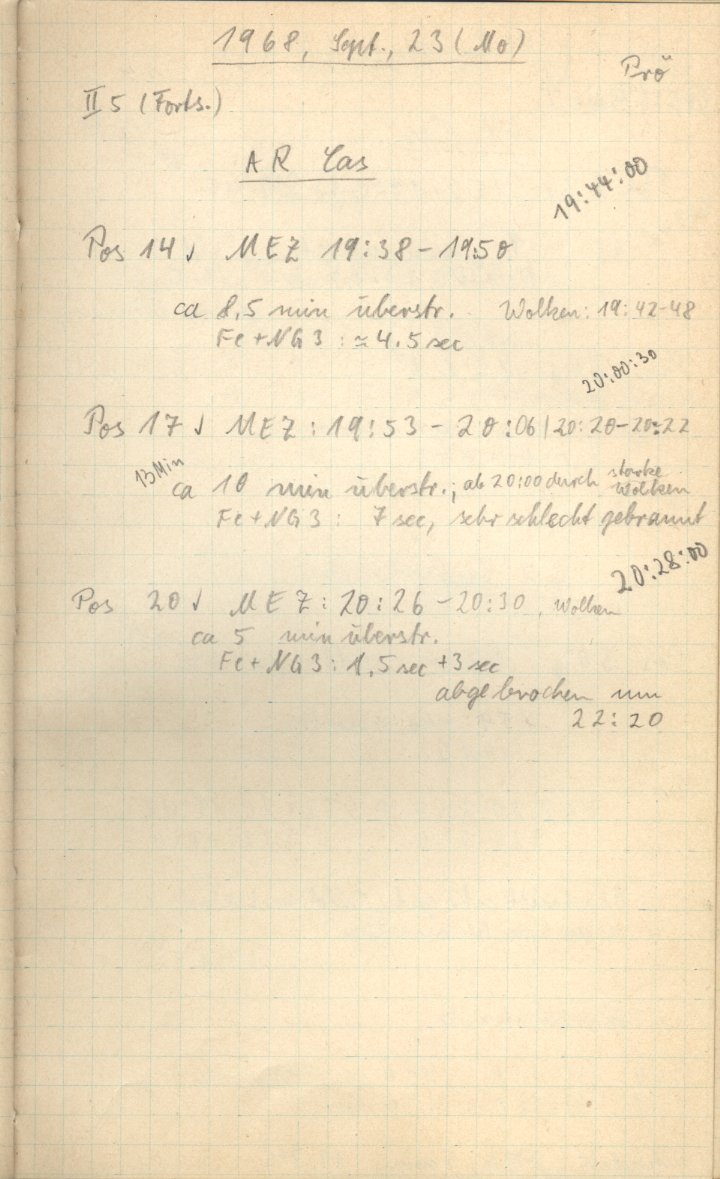 1968, Sept., 23 (Mo)
Prö
II 5 (Forts.)
AR Cas
19:44:00
Pos 14 √ MEZ 19:38 - 19:50
ca 8,5 min überstr. Wolken: 19:42-48
Fe+NG3 : ≈ 4.5 sec
20:00:30
Pos 17 √ MEZ : 19:53 - 20:06 | 20:20-20:22
13 Min
ca 10 min überstr.; ab 20:00 durch starke Wolken
Fe+NG3 : 7 sec, sehr schlecht gebrannt
20:28:00
Pos 20 √ MEZ : 20:26 - 20:30, Wolken
ca 5 min überstr.
Fe+NG3 : 1,5 sec + 3 sec
abgebrochen um
22:20